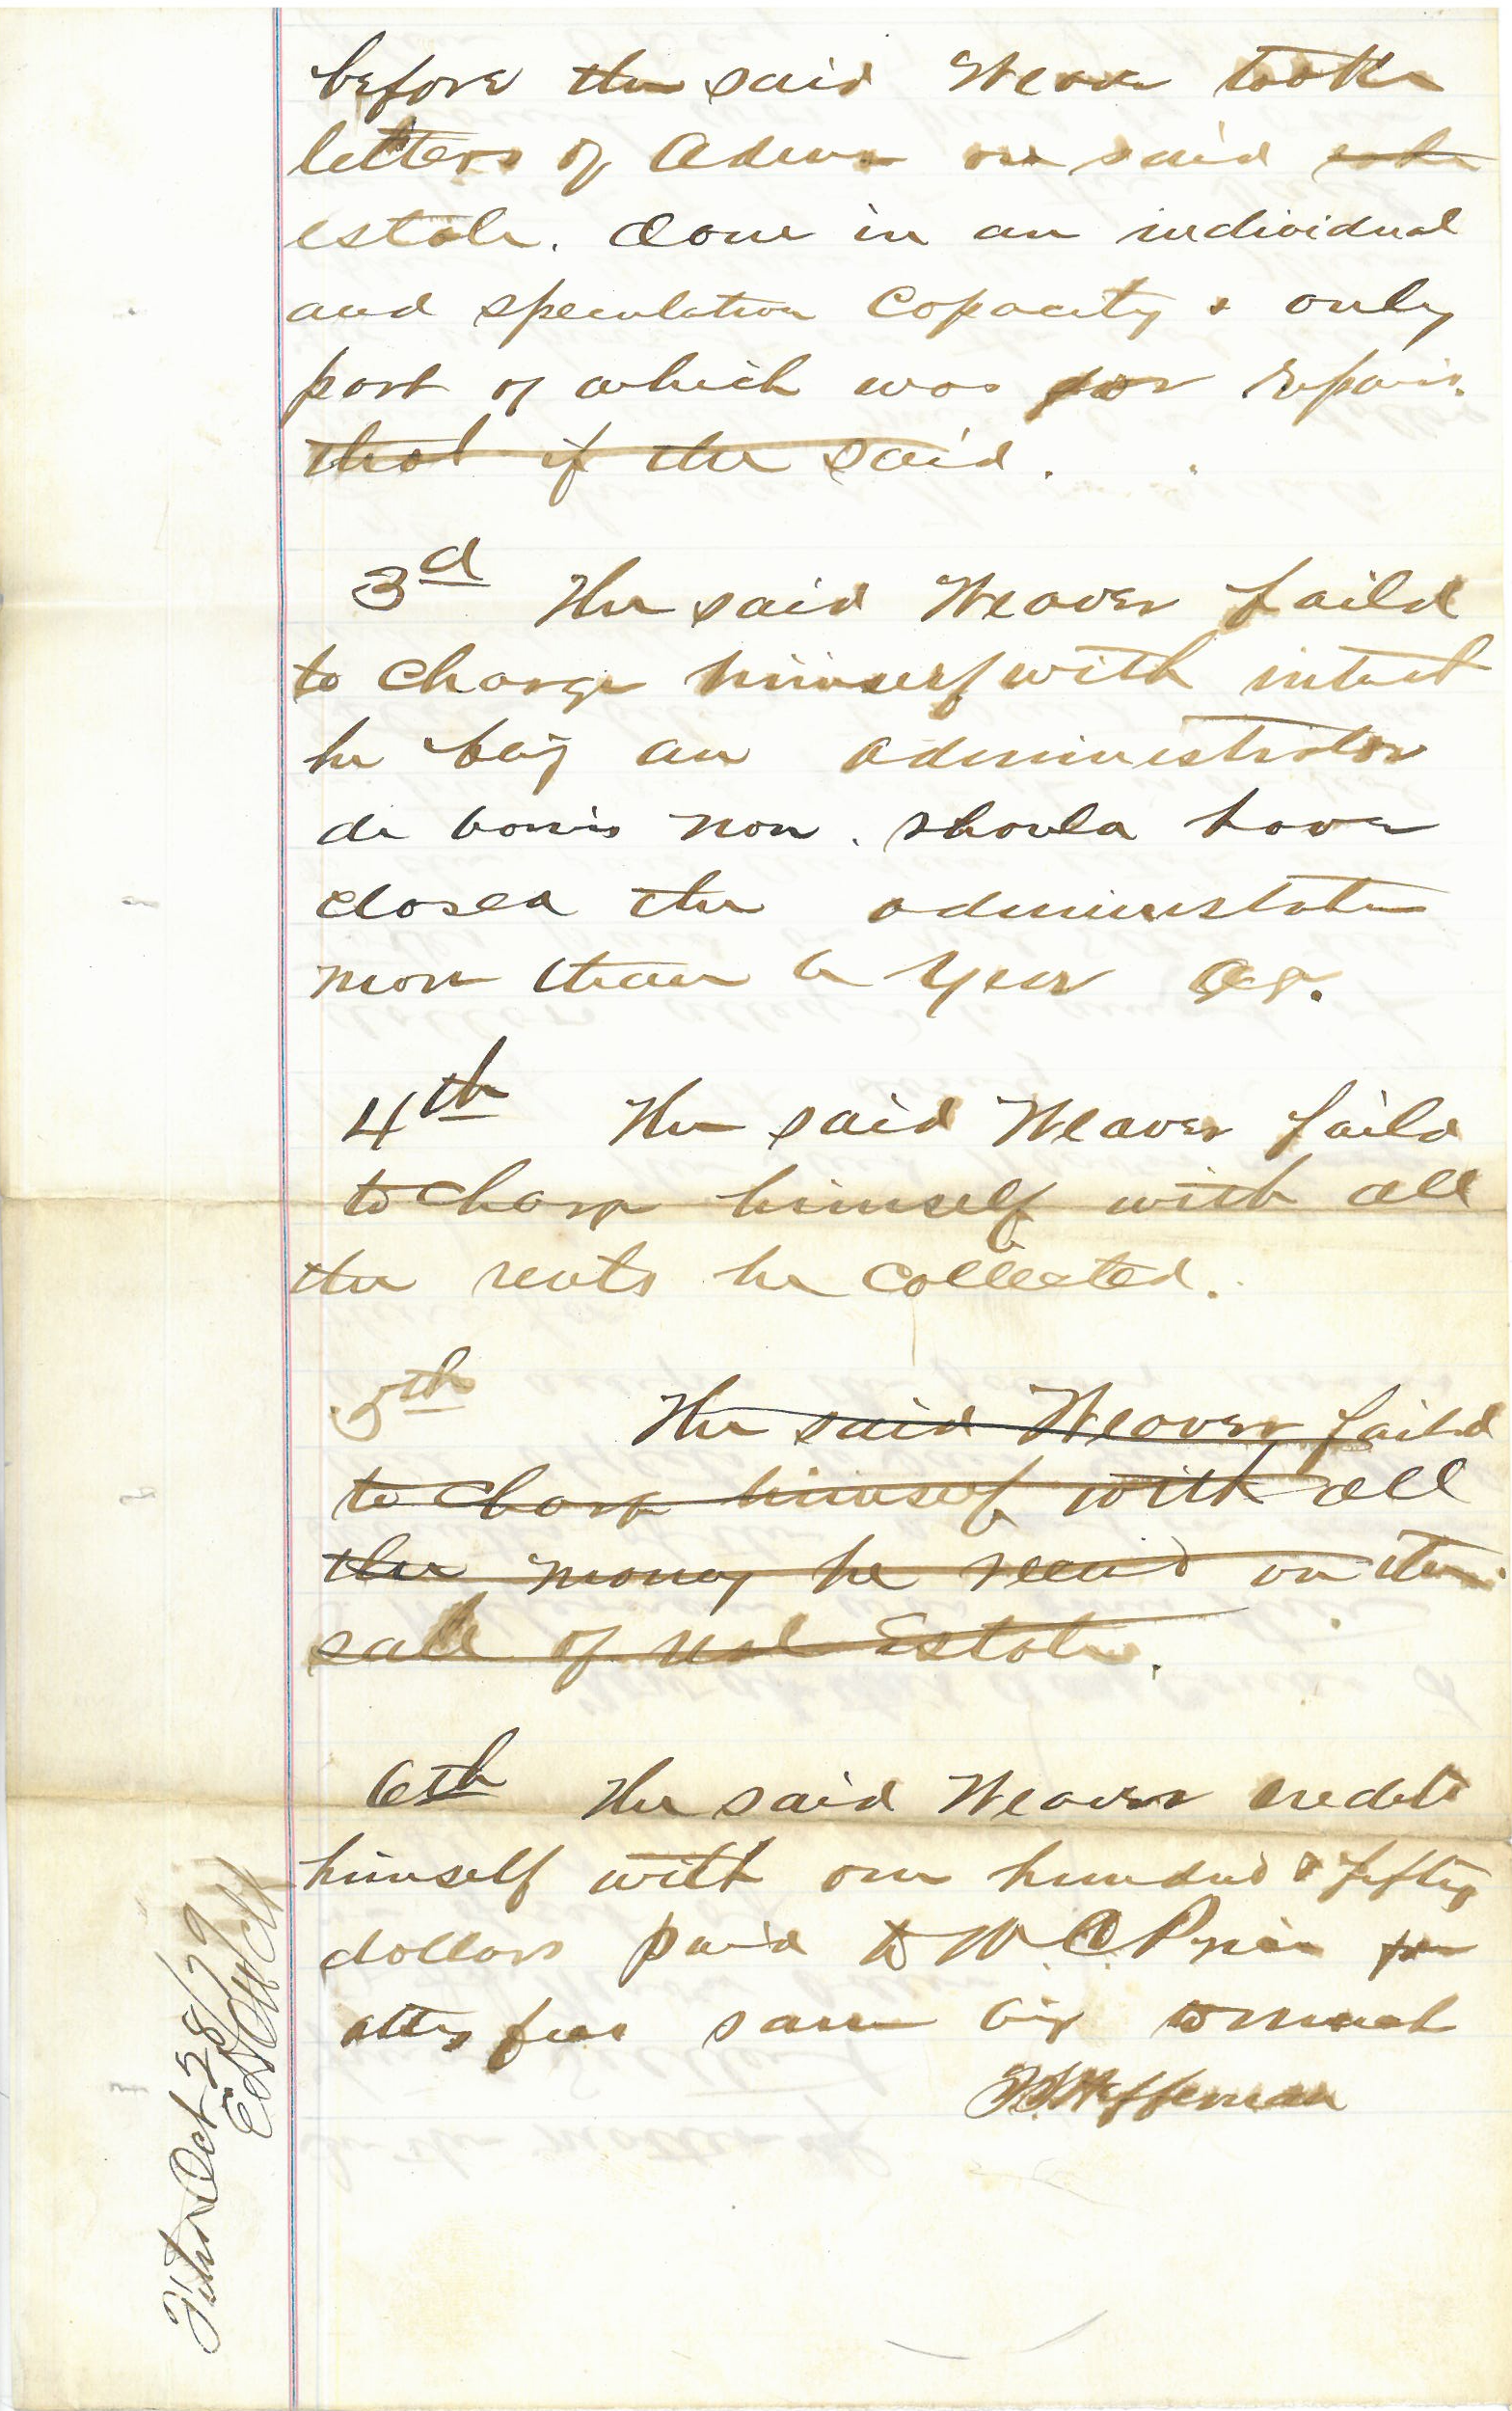 before the said Weaver took
letters of Admr on said
estate. done in an individual
and speculation Capacity & only
part of which was for repairs.
that if the said.
3d The said Weaver faild
to charge himself with intrest
he being an administrator
de bonis non. should have
closed the administration
more than a year ago.
4th The said Weaver faild
to charge himself with all
the rents he collected.
5th The said Weaver faild
to charge himself with all
the money he received on the
sale of real Estate.
6th The said Weaver credits
himself with one hundred & fifty
dollars paid to W. C. Price for
attys fees same being to much
Heffernan
Filed Oct 28/79